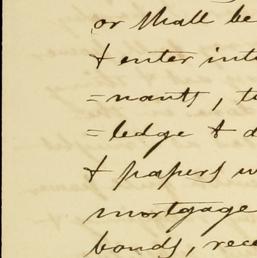 or shall be
& enter int
=nants, t
=ledge & d
& papers w
mortgage
bonds, rece